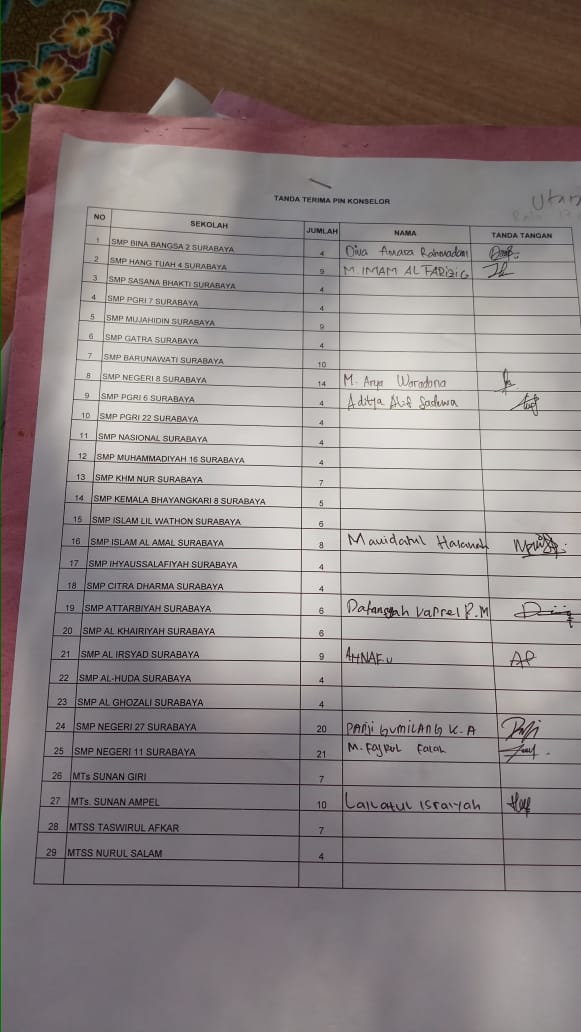 Utara
TANDA TERIMA PIN KONSELOR
NO SEKOLAH JUMLAH NAMA TANDA TANGAN
1 SMP BINA BANGSA 2 SURABAYA 4 Diva Amara Rahmadani
2 SMP HANG TUAH 4 SURABAYA 9 M. IMAM AL FARIZI G
3 SMP SASANA BHAKTI SURABAYA 4
4 SMP PGRI 7 SURABAYA 4
5 SMP MUJAHIDIN SURABAYA 9
6 SMP GATRA SURABAYA 4
7 SMP BARUNAWATI SURABAYA 10
8 SMP NEGERI 8 SURABAYA 14 M. Arya Wardana
9 SMP PGRI 6 SURABAYA 4 Aditya Alif Sadewa
10 SMP PGRI 22 SURABAYA 4
11 SMP NASIONAL SURABAYA 4
12 SMP MUHAMMADIYAH 16 SURABAYA 4
13 SMP KHM NUR SURABAYA 7
14 SMP KEMALA BHAYANGKARI 8 SURABAYA 5
15 SMP ISLAM LIL WATHON SURABAYA 6
16 SMP ISLAM AL AMAL SURABAYA 8 Mauidatul Hasanah
17 SMP IHYAUSSALAFIYAH SURABAYA 4
18 SMP CITRA DHARMA SURABAYA 4
19 SMP ATTARBIYAH SURABAYA 6 Varrel P.M
20 SMP AL KHAIRIYAH SURABAYA 6
21 SMP AL IRSYAD SURABAYA 9 AHNAF
22 SMP AL-HUDA SURABAYA 4
23 SMP AL GHOZALI SURABAYA 4
24 SMP NEGERI 27 SURABAYA 20 PANJI GUMILANG K.A
25 SMP NEGERI 11 SURABAYA 21 M. Fajrul Falah
26 MTs SUNAN GIRI 7
27 MTs. SUNAN AMPEL 10 Lailatul Israiyah
28 MTSS TASWIRUL AFKAR 7
29 MTSS NURUL SALAM 4